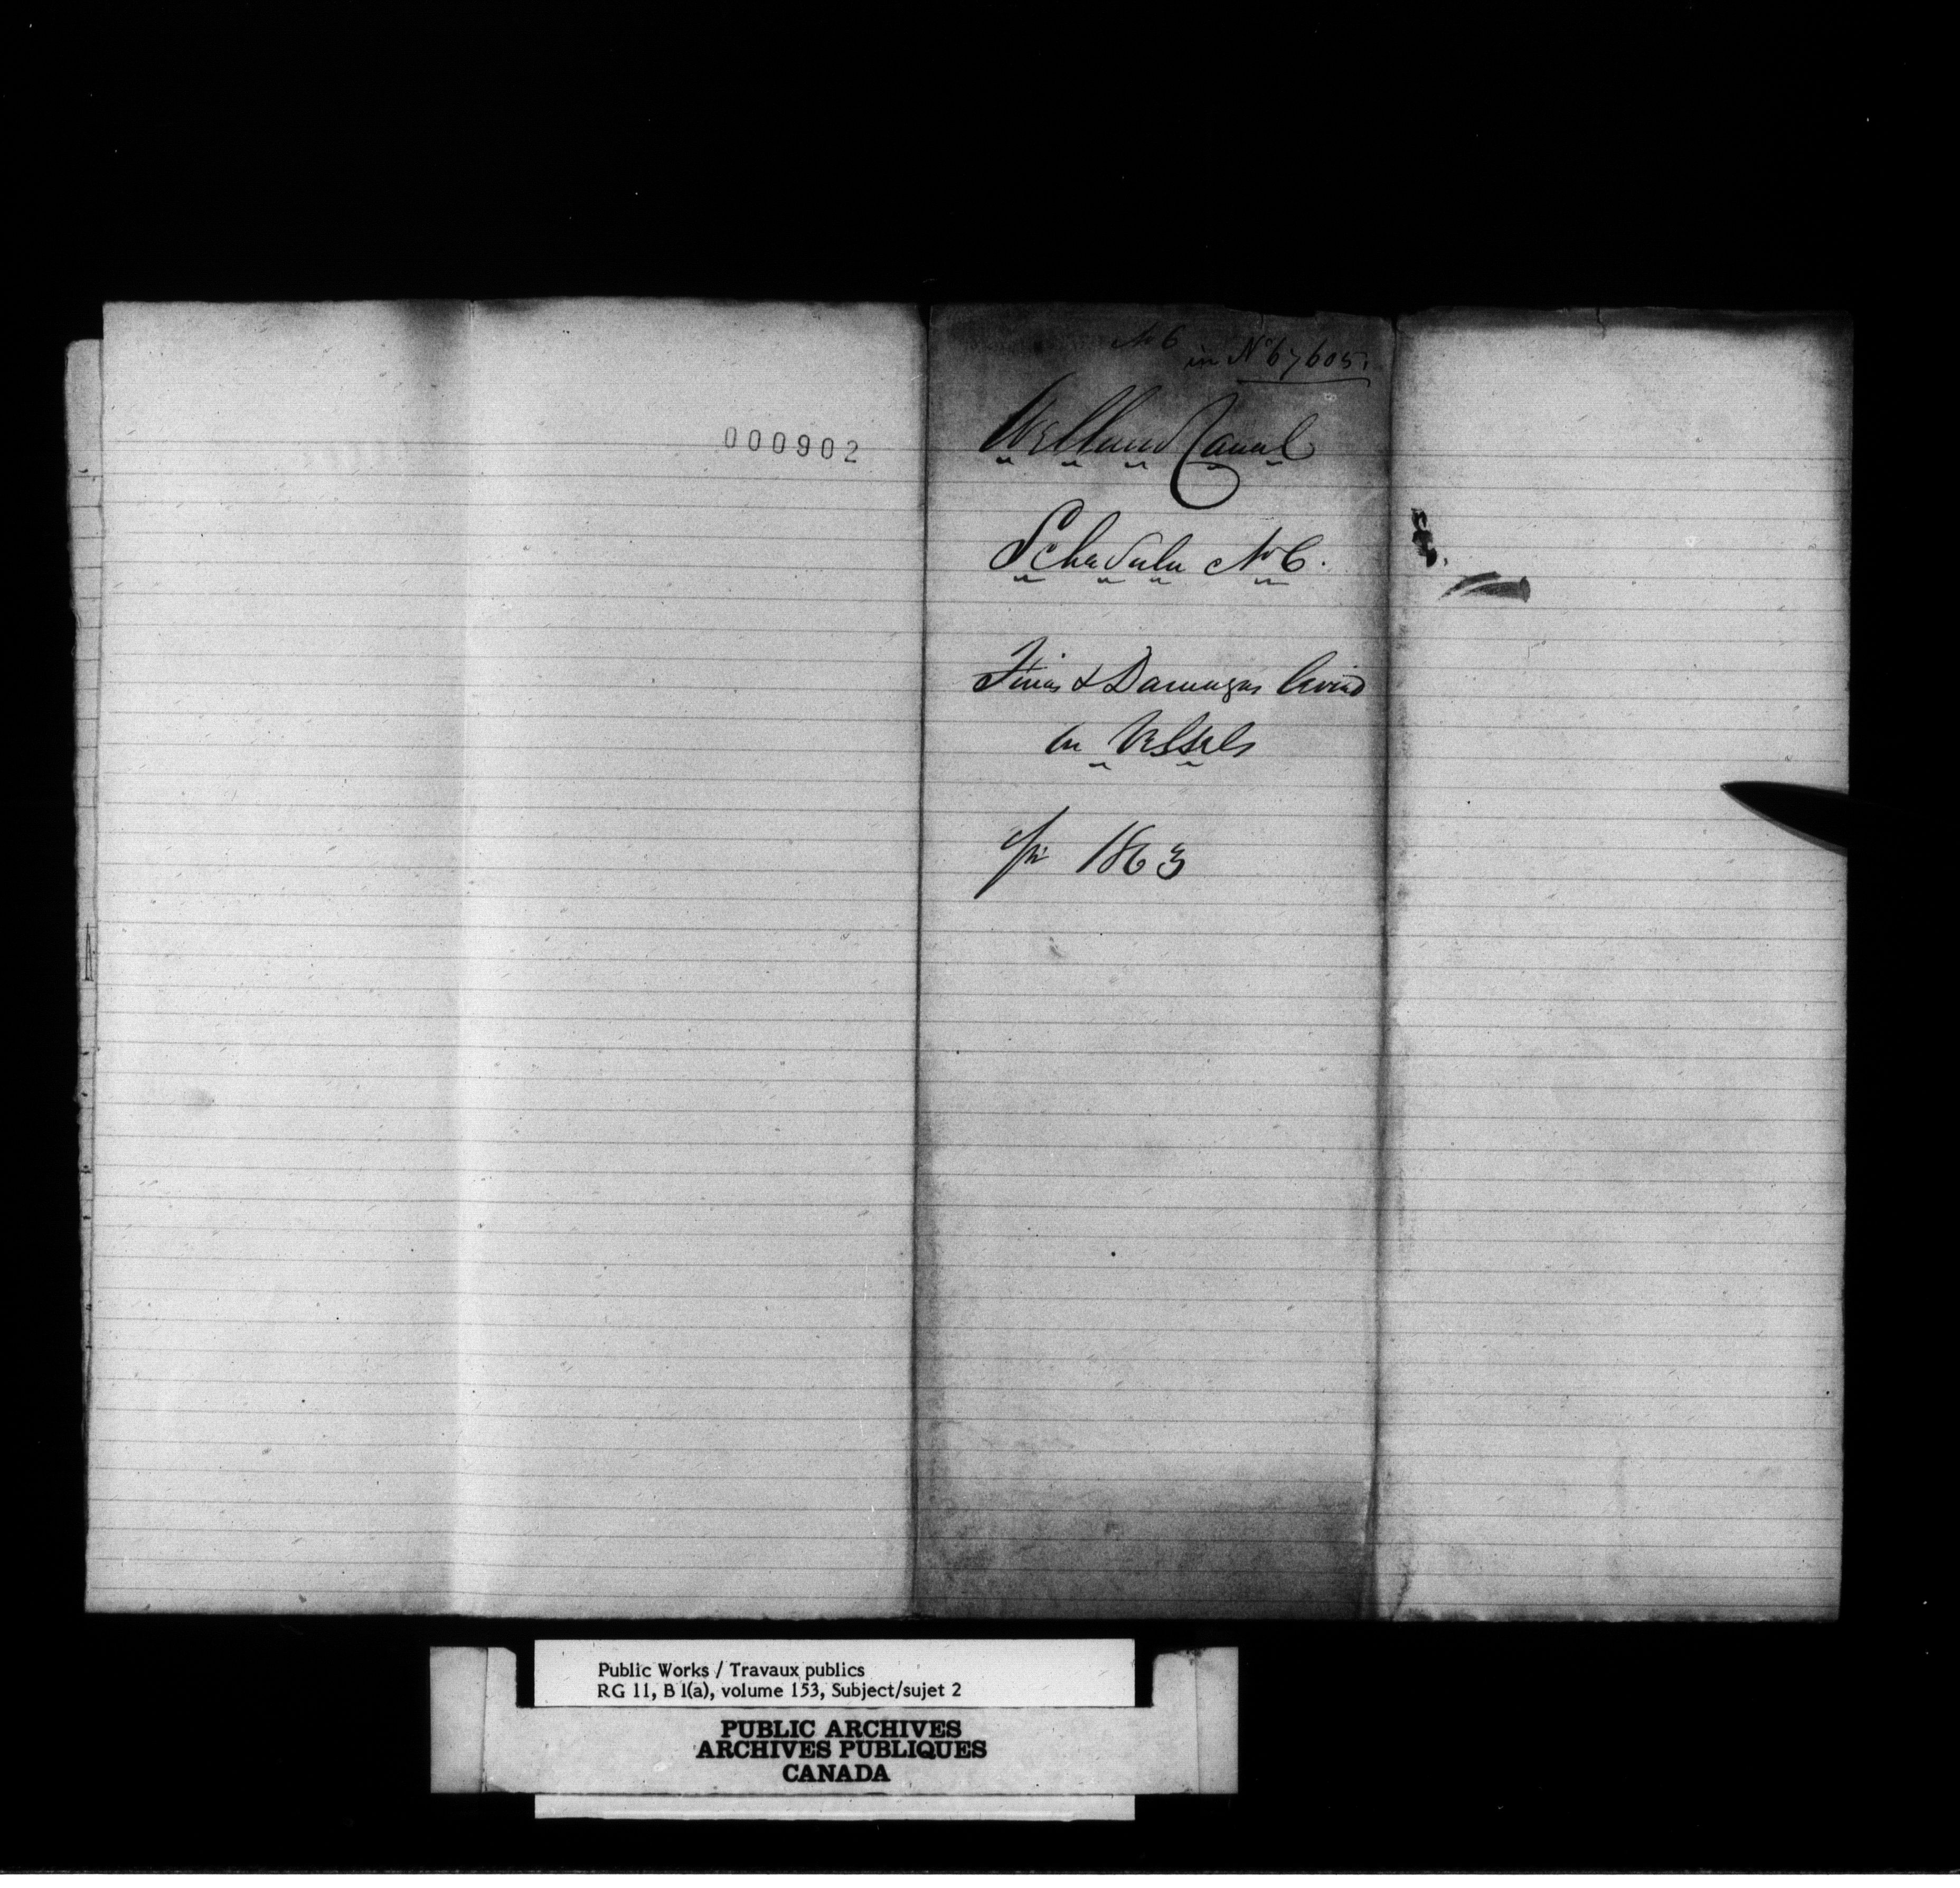 000902
No 6
in No 67605.
Welland Canal
Schedule No 6.
Fines & Damages levied
on Vessels
for 1863
Public Works / Travaux publics
RG 11, B 1(a), volume 153, Subject/sujet 2
PUBLIC ARCHIVES
ARCHIVES PUBLIQUES
CANADA